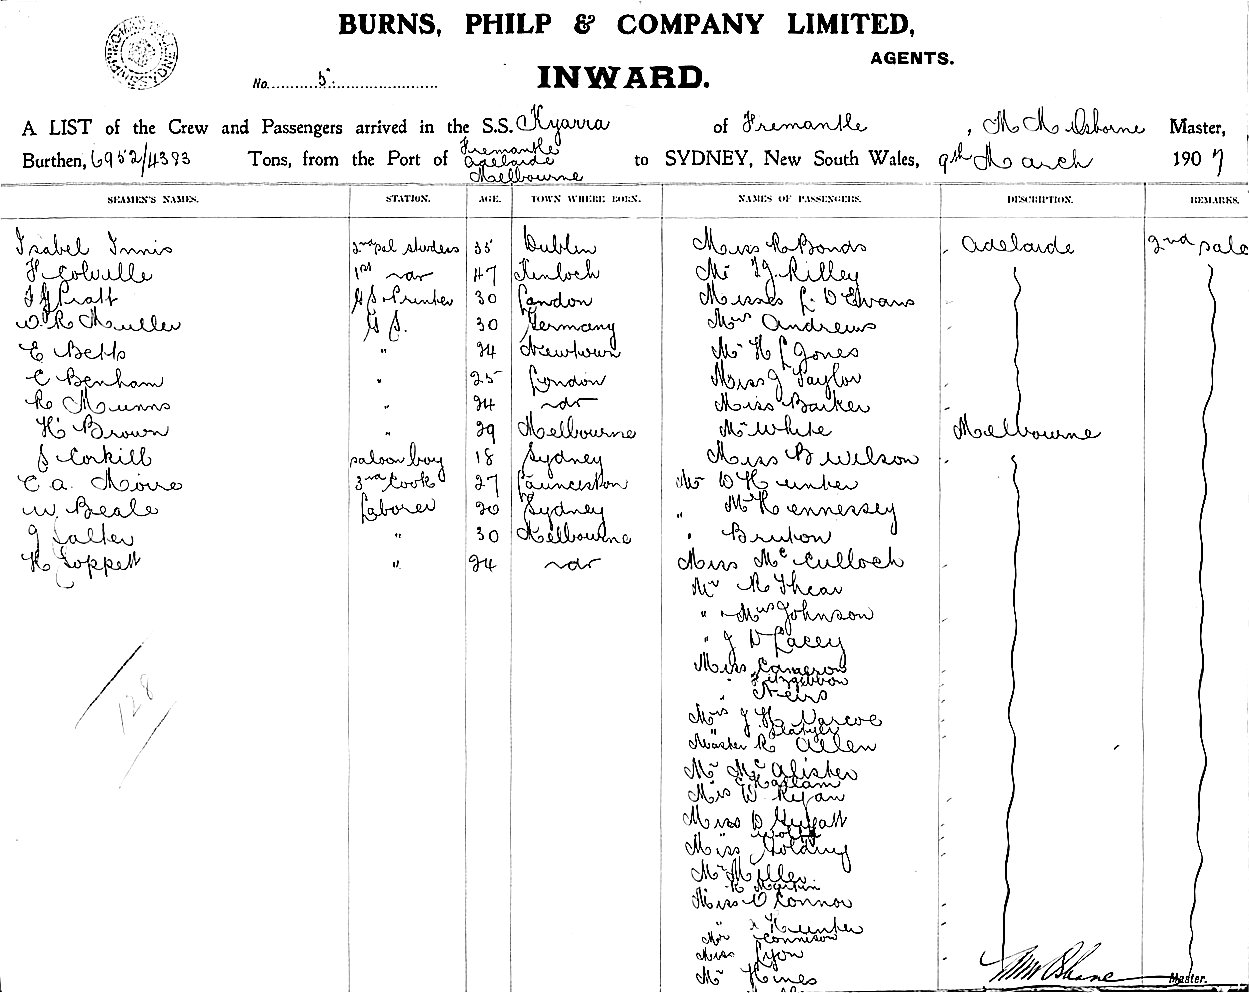 BURNS, PHILP & COMPANY LIMITED,
AGENTS.
No. 5
INWARD.
A LIST of the Crew and Passengers arrived in the S.S. Kyarra of Fremantle, M M Osborne Master,
Burthen, 6952/4383 Tons, from the Port of Fremantle Adelaide Melbourne to SYDNEY, New South Wales, 9th March 1907
SEAMEN'S NAMES. STATION. AGE. TOWN WHERE BORN. NAMES OF PASSENGERS. DESCRIPTION. REMARKS.
Isabel Innis 2nd sal stwdess 35 Dublin Miss R Bonds Adelaide 2nd salo
F Colville 1st 47 Kinloch Mr Rilley
Pratt G S & Printer 30 London Misses L. D Evans
W. R Muller G S. 30 Germany Mrs Andrews
E Betts " 24 Newtown Mr H L Jones
C Benham " 25 London Miss J Taylor
R Munns " 24 do Miss Barker
H Brown " 29 Melbourne Mr White Melbourne
J Corkill saloon boy 18 Sydney Miss B Wilson
C a. Moore 3rd Cook 27 Launceston Mr D Hunter
W Beale Laborer 20 Sydney " Hennessey
J Salter " 30 Melbourne " Bruton
H Loppett " 24 do Miss McCulloch
Mr R Thear
" Mrs Johnson
" J D Lacey
Miss Cameron
" Fitzgibbon
" Neirs
Mrs J H Varcoe
Master R Allen
Mr McAlister
Haslam
W Ryan
Miss D
Miss Golding
Mr Miller
Miss O'Connor
" Hunter
Mr
Miss Lyon
Mr Hines
128
Master.